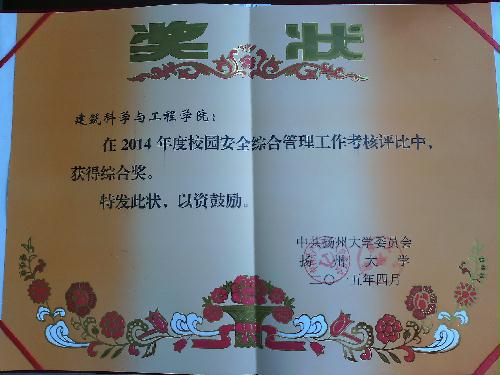 奖状
建筑科学与工程学院：
在2014年度校园安全综合管理工作考核评比中，
获得综合奖。
特发此状，以资鼓励。
中共扬州大学委员会
扬州大学
二〇一五年四月